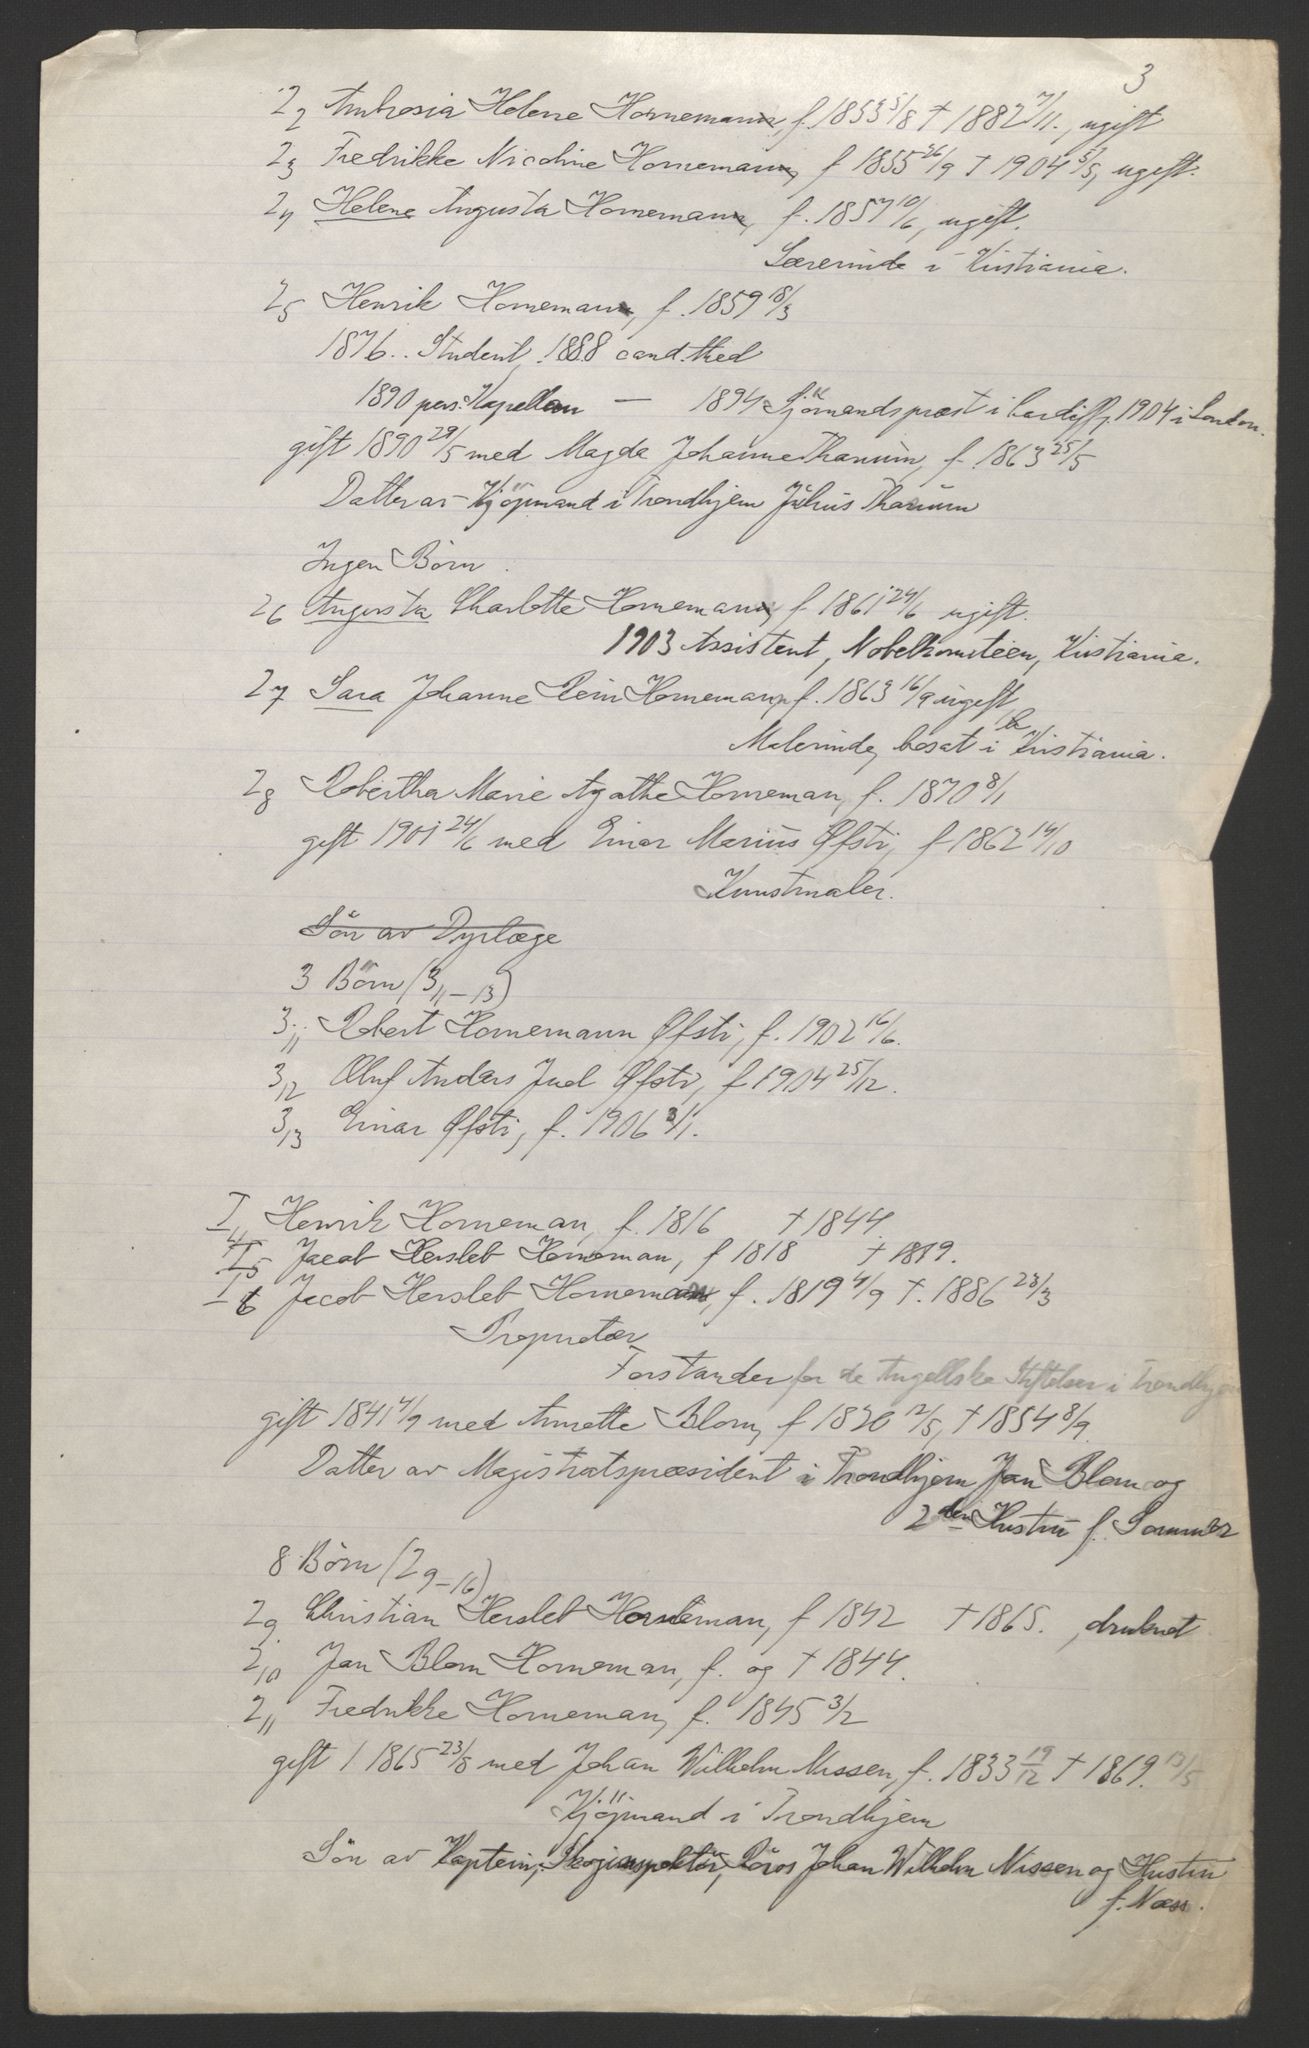 3
2 2 Ambrosia Helene Hornemann, f. 1853 5/8 † 1882 7/11., ugift
2 3 Fredrikke Nicoline Hornemann, f 1855 26/9 † 1904 5/5, ugift.
2 4 Helene Augusta Hornemann, f. 1857 10/6, ugift.
Lærerinde i Kristiania.
2 5 Henrik Hornemann, f. 1859 18/3
1876.. Student, 1888 cand. theol
1890 pers. Kapellan — 1894 Sjömandsprest i Cardiff, 1904 i London.
gift 1890 29/5 med Magda Johanne Thaulow, f. 1863 25/5
Datter av Kjöpmand i Trondhjem Julius
Ingen Börn.
2 6 Augusta Charlotte Hornemann, f 1861 24/6 ugift.
1903 Assistent, Nobelkomiteen, Kristiania.
2 7 Sara Johanne Rein Hornemann, f. 1863 16/9 ugift,
Malerinde, bosat i Kristiania.
2 8 Robertha Marie Agathe Horneman, f. 1870 8/1
gift 1901 24/6 med Einar Marius Øfsti, f 1862 14/10
Kunstmaler.
Sön av Dyrlæge
3 Börn (3 11–13)
3 11 Robert Hornemann Øfsti, f. 1902 16/6.
3 12 Oluf Anders Juel Øfsti, f 1904 25/12.
3 13 Einar Øfsti, f. 1906 3/1.
I 4 Henrik Horneman, f. 1816 † 1844.
I 5 Jacob Hersleb Horneman, f 1818 † 1819.
I 6 Jacob Hersleb Horneman, f. 1819 4/9 †. 1886 23/3
Proprietær
Forstander for de Angellske Stiftelser i Trondhjem
gift 1841 4/9 med Annette Blom, f 1820 12/5, † 1854 8/9.
Datter av Magistratspræsident i Trondhjem Jan Blom og
2den Hustru f. Sommer
8 Börn (2 9–16)
2 9 Christian Hersleb Horneman, f 1842 † 1865., druknet
2 10 Jan Blom Horneman, f. og † 1844.
2 11 Fredrikke Horneman, f. 1845 3/2
gift 1 1865 23/8 med Johan Wilhelm Nissen, f. 1833 19/12 † 1869. 13/5
Kjöpmand i Trondhjem
Sön av Kaptein, Skoginspektör, Röros Johan Wilhelm Nissen og Hustru
f. Næss.